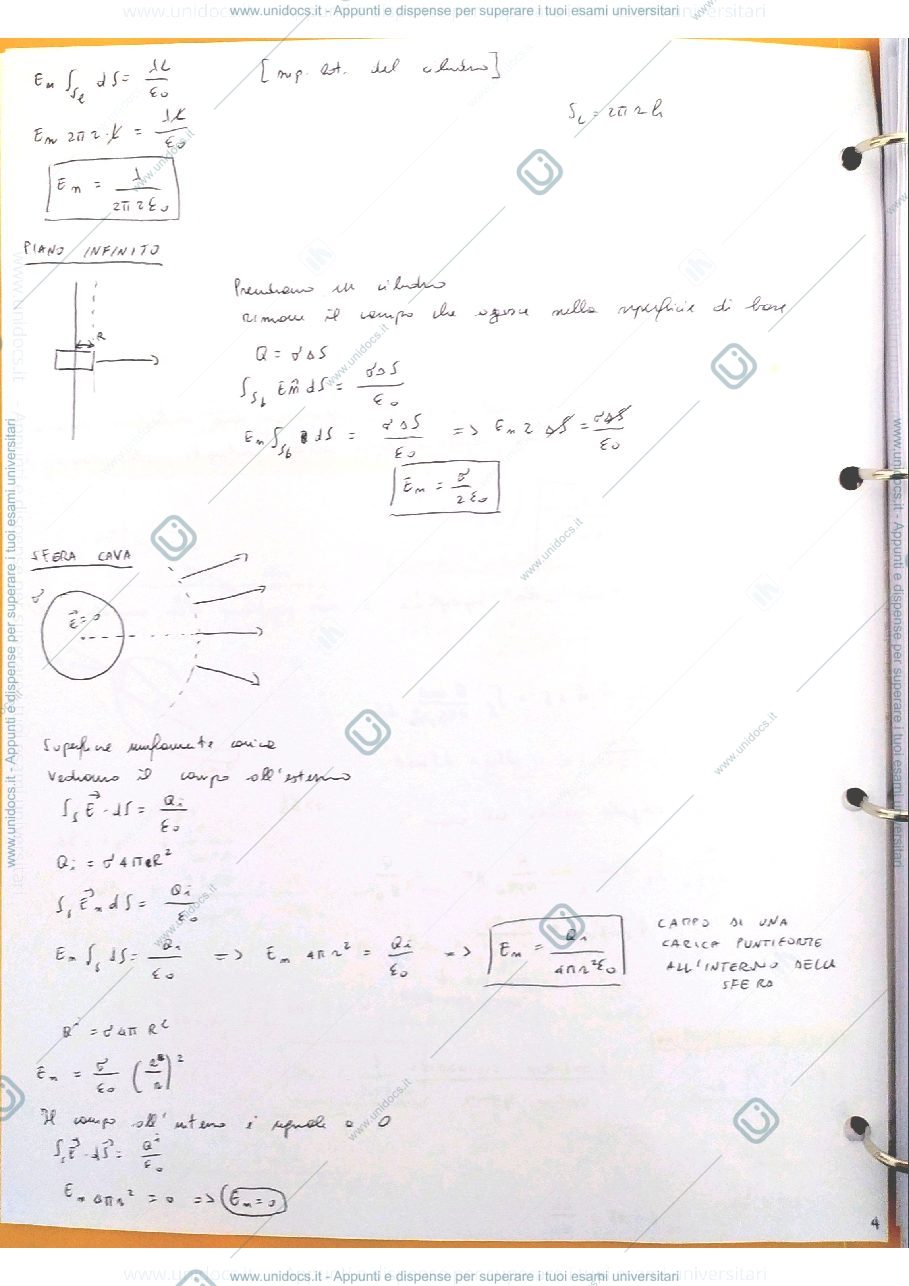 www.unidocs.it - Appunti e dispense per superare i tuoi esami universitari
En ∫Sl dS = λL/ε0 [sup. lat. del cilindro]
Sl = 2πrh
En 2πr·L = λL/ε0
En = λ/2πrε0
PIANO INFINITO
Prendiamo un cilindro
rimane il campo che agisce nella superficie di base
R
Q = σΔS
∫Sb En dS = σΔS/ε0
En ∫Sb dS = σΔS/ε0 => En 2 ΔS = σΔS/ε0
En = σ/2ε0
SFERA CAVA
σ
E = 0
Superficie unifomente carica
Vediamo il campo all'esterno
∫S E · dS = Qi/ε0
Qi = σ4πR²
∫S En dS = Qi/ε0
En ∫S dS = Qi/ε0 => En 4πr² = Qi/ε0 => En = Qi/4πr²ε0
CAMPO DI UNA
CARICA PUNTIFORME
ALL'INTERNO DELLA
SFERA
= σ4πR²
En = σ/ε0 (R/r)²
Il campo all'interno è uguale a 0
∫S E · dS = Qi/ε0
En 4πr² = 0 => En = 0
4
www.unidocs.it - Appunti e dispense per superare i tuoi esami universitari